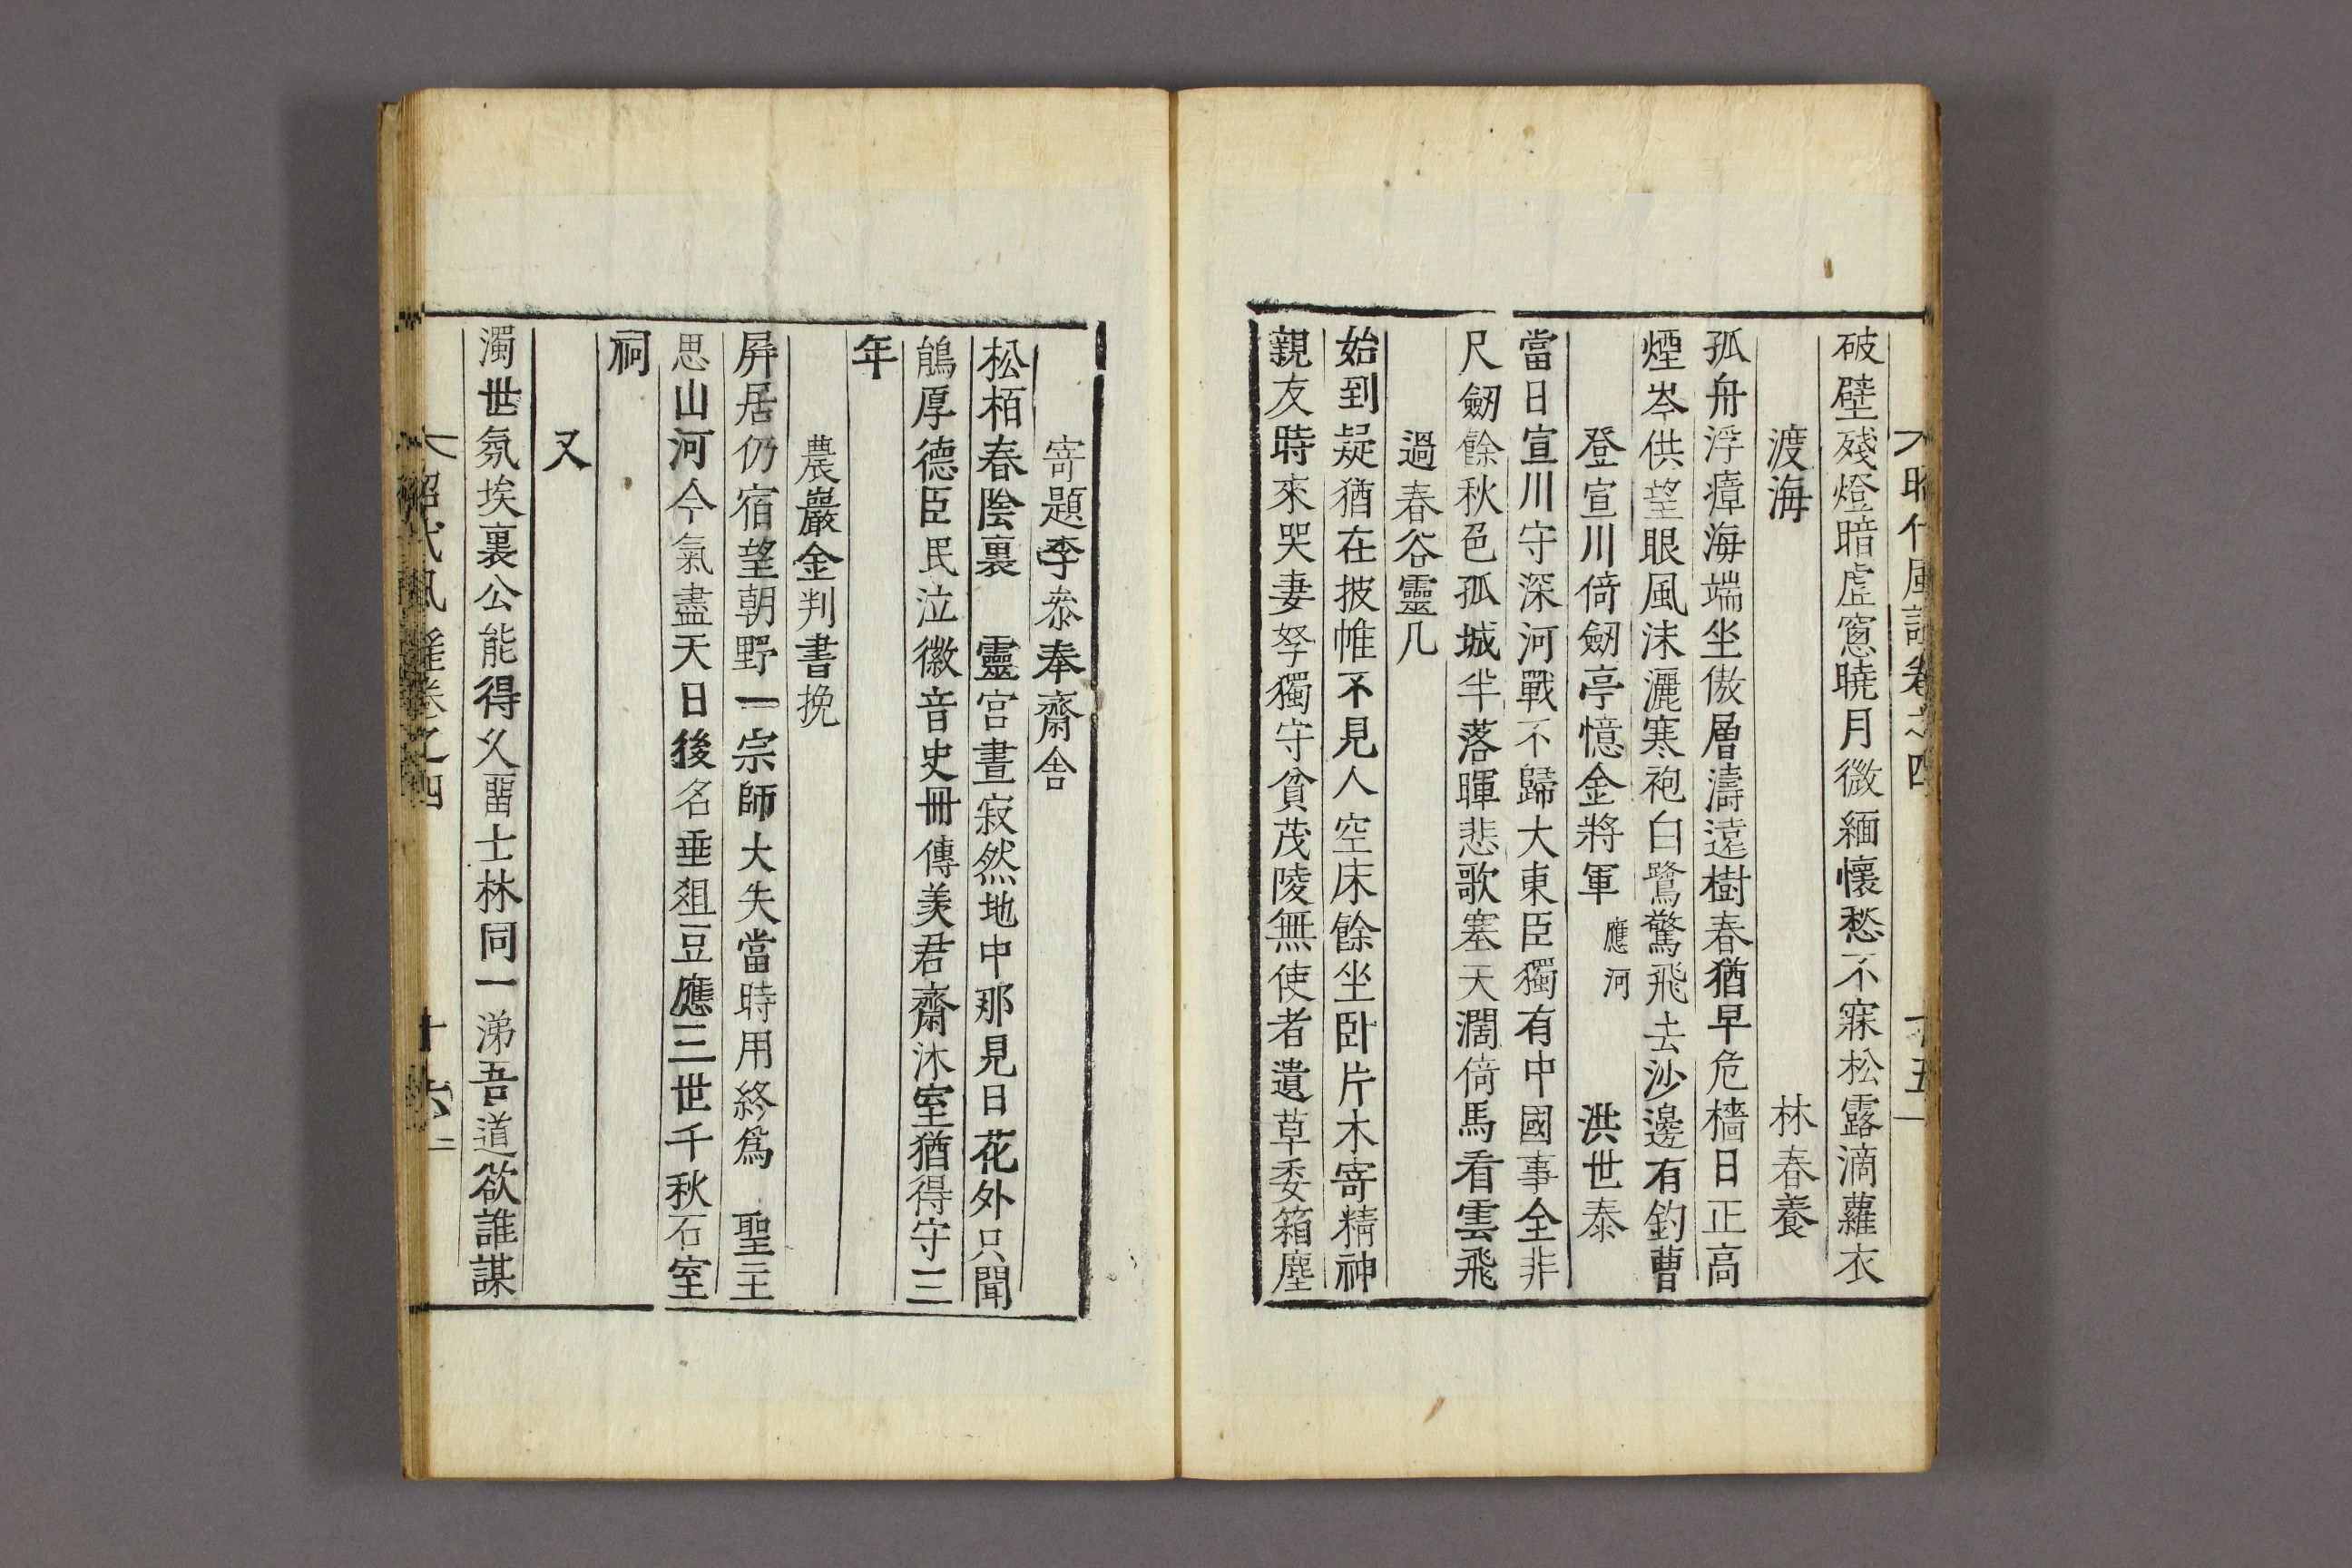 昭代風謠卷之四
十五
破壁殘燈暗虛窓曉月微緬懷愁不寐松露滴蘿衣
渡海 林春養
孤舟浮瘴海端坐傲層濤遠樹春猶早危檣日正高
煙岑供望眼風沫灑寒袍白鷺驚飛去沙邊有釣曹
登宣川倚劒亭憶金將軍 應河 洪世泰
當日宣川守深河戰不歸大東臣獨有中國事全非
尺劒餘秋色孤城半落暉悲歌塞天濶倚馬看雲飛
過春谷靈几
始到疑猶在披帷不見人空床餘坐卧片木寄精神
親友時來哭妻孥獨守貧茂陵無使者遺草委箱塵
寄題李叅奉齋舍
松栢春陰裏 靈宮晝寂然地中那見日花外只聞
鵑厚德臣民泣徽音史冊傳羨君齋沐室猶得守三
年
農巖金判書挽
屛居仍宿望朝野一宗師大失當時用終爲 聖主
思山河今氣盡天日後名垂俎豆應三世千秋石室
祠
又
濁世氛埃裏公能得久畱士林同一涕吾道欲誰謀
昭代風謠卷之四
十六
二